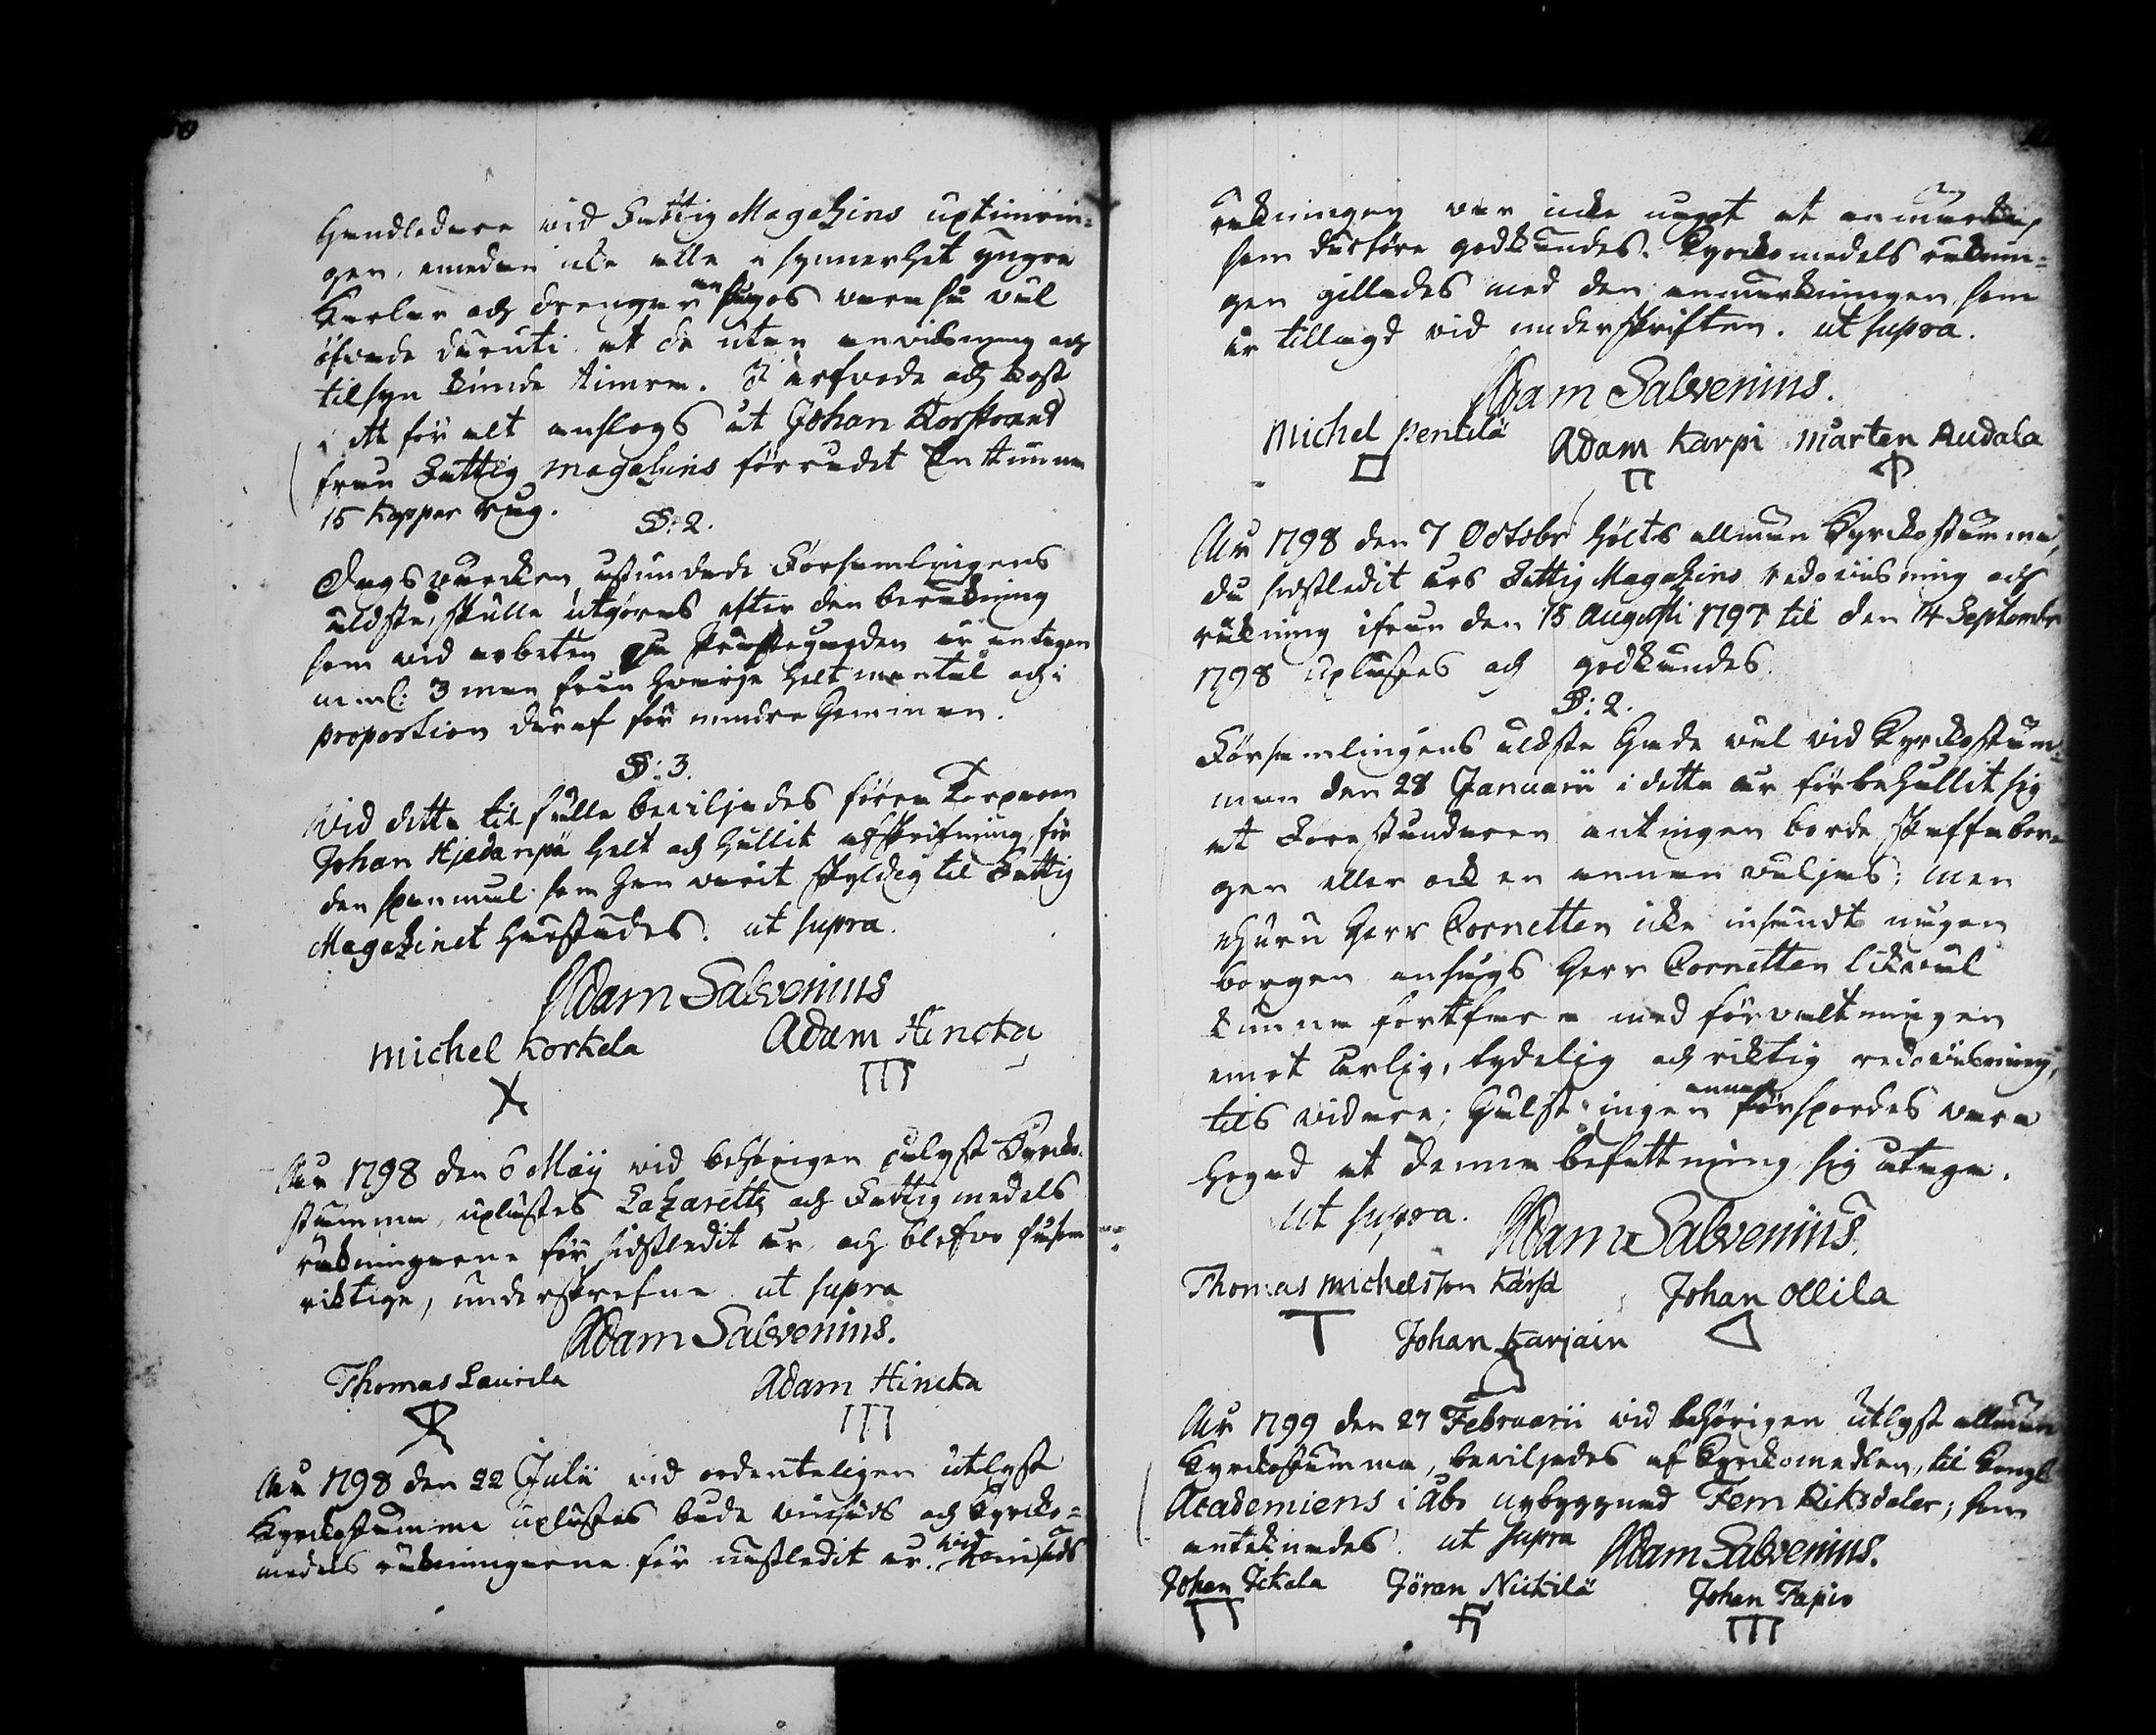 Handledare vid Fattig Magazins uptimrin=
gen, emedan icke alla i synnerhet yngre
Karlar och drengar ansågos vara så väl
öfvade däruti at de utan anvisning och
tilsyn kunde timra. I arfvode och kost
i ett för alt anslogs åt Johan Korsstrand
från Fattig magazins förrådet En tunna
15 kappar råg.
§: 2.
Dagsvärcken åstundade Församlingens
äldste, skulle utgöras efter den beräkning
som vid arbeten på Prästegården är antagen
neml: 3 man från hvarje helt mantal och i
proportion däraf för mindre Hemman.
§: 3.
Vid detta tilfälle beviljades förra Torparen
Johan Hjedanpä helt och hållit afskrifning för
den spanmål som han varit skyldig til Fattig
Magazinet härstädes. ut supra.
Adam Salvenius
Michel Korkela
Adam Hincka
År 1798 den 6 Maij vid behörigen pålyst Kyrcko-
stämma, uplästes Lazaretts och Fattigmedels
räkningarne för sidstledit år, och blefvo såsom
riktige, underskrefne ut supra
Adam Salvenius.
Thomas Laurila
Adam Hincka
År 1798 den 22 Julii vid ordenteligen utlyst
Kyrckostämma uplästes både vinsäds och Kyrcko=
medels räkningarne för nästledit år. vid Tornsäds
räkningen var icke något at anmärka,
som därföre godkändes. Kyrckomedels räknin=
gen gillades med den anmärkningen, som
är tillagd vid underskriften. ut supra.
Adam Salvenius.
Michel Pentilä
Adam Karpi
Mårten Audala
År 1798 den 7 Octobr hölts allmän Kyrckostämma,
då sidstledit års Fattig Magazins redovisning och
räkning ifrån den 15 Augusti 1797 til den 14 Septembr
1798 uplästes och godkändes.
§: 2.
Församlingens äldste hade väl vid Kyrckostäm=
man den 28 Januarii i detta år förbehållit sig
at Föreståndaren antingen borde skaffa bor=
gen eller ock en annan väljas; men
ehuru Herr Cornetten icke insändt någon
borgen ansågs Herr Cornetten likväl
kunna fortfara med förvaltningen
emot årlig, tydelig och riktig redovisning,
tils vidare; hälst ingen annan förspordes vara
hogad at denna befattning sig åtaga.
ut supra.
Adam Salvenius.
Thomas Michelsson Kärsä
Johan Ollila
Johan Karjain
År 1799 den 27 Februarii vid behörigen utlyst allmän
Kyrckostämma, beviljades af Kyrckomedlen, til Kongl
Academiens i Åbo nybyggnad Fem Riksdaler; som
antecknades. ut supra
Adam Salvenius.
Johan Ickala
Jöran Niikilä
Johan Tapio